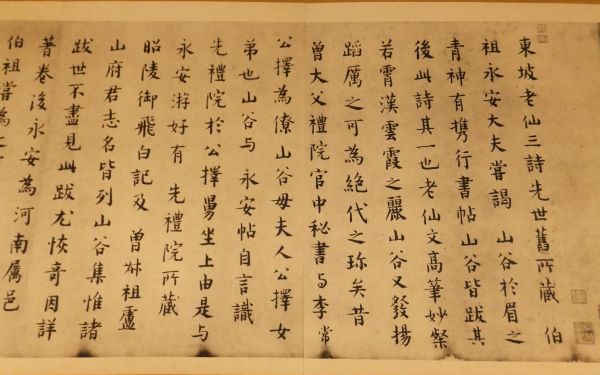 東坡老仙三詩先世舊所藏伯
祖永安大夫嘗謁山谷於眉之
青神有攜行書帖山谷皆跋其
後此詩其一也老仙文高筆妙粲
若霄漢雲霞之麗山谷又發揚
蹈厲之可為絕代之珍矣昔
曾大父禮院官中秘書与李常
公擇為僚山谷母夫人公擇女
弟也山谷与永安帖自言識
先禮院於公擇舅坐上由是与
永安游好有先禮院所藏
昭陵御飛白記及曾姊祖盧
山府君志名皆列山谷集惟諸
跋世不盡見此跋尤恢奇因詳
著卷後永安為河南屬邑
伯祖嘗為之